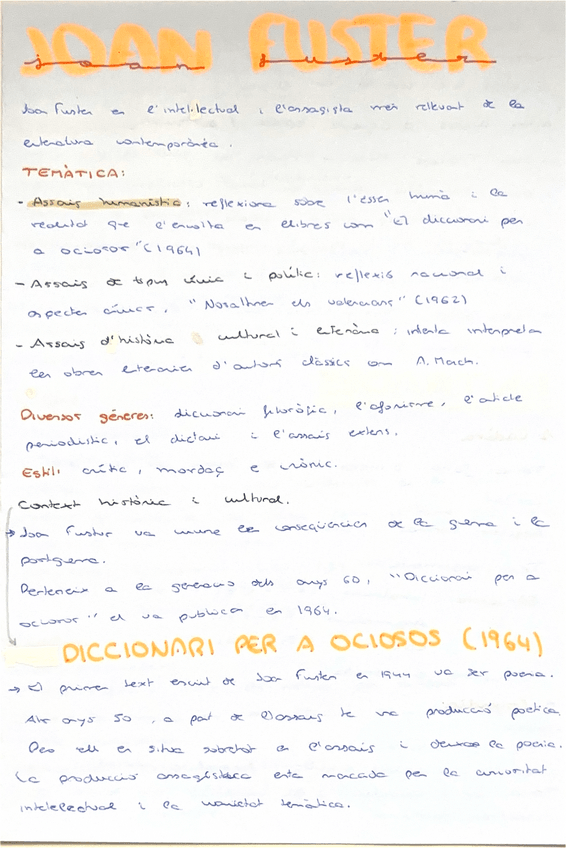 JOAN FUSTER
joan fuster
Joan Fuster es l'intel·lectual i l'assagista més rellevant de la
literatura contemporània.
TEMÀTICA:
- Assaig humanístic: reflexiona sobre l'ésser humà i la
realitat que l'envolta en llibres com "El diccionari per
a ociosos" (1964)
- Assaig de tipus cívic i polític: reflexió nacional i
aspectes cívics. "Nosaltres els valencians" (1962)
- Assaig d'història cultural i literària: intenta interpretar
les obres literaries d'autors clàssics com A. March.
Diversos gèneres: diccionari filosòfic, l'aforisme, l'article
periodístic, el dietari i l'assaig extens.
Estil: crític, mordaç e irònic.
Context històric i cultural.
→ Joan Fuster va viure les conseqüències de la guerra i la
postguerra.
Perteneix a la generació dels anys 60, "Diccionari per a
ociosos" el va publicar en 1964.
DICCIONARI PER A OCIOSOS (1964)
→ El primer text escrit de Joan Fuster en 1944 va ser poema.
Als anys 50, a part de l'assaig te una producció poetica.
Pero ell es situa sobretot en l'assaig i deixa la poesia.
La producció assagística esta marcada per la curiositat
intelectual i la varietat temàtica.